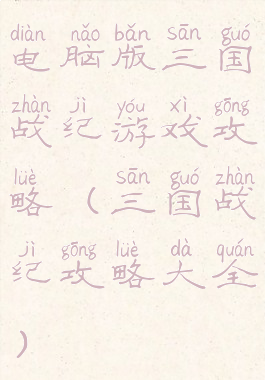 diàn nǎo bǎn sān guó
电脑版三国
zhàn jì yóu xì gōng
战纪游戏攻
lüè sān guó zhàn
略（三国战
jì gōng lüè dà quán
纪攻略大全
）